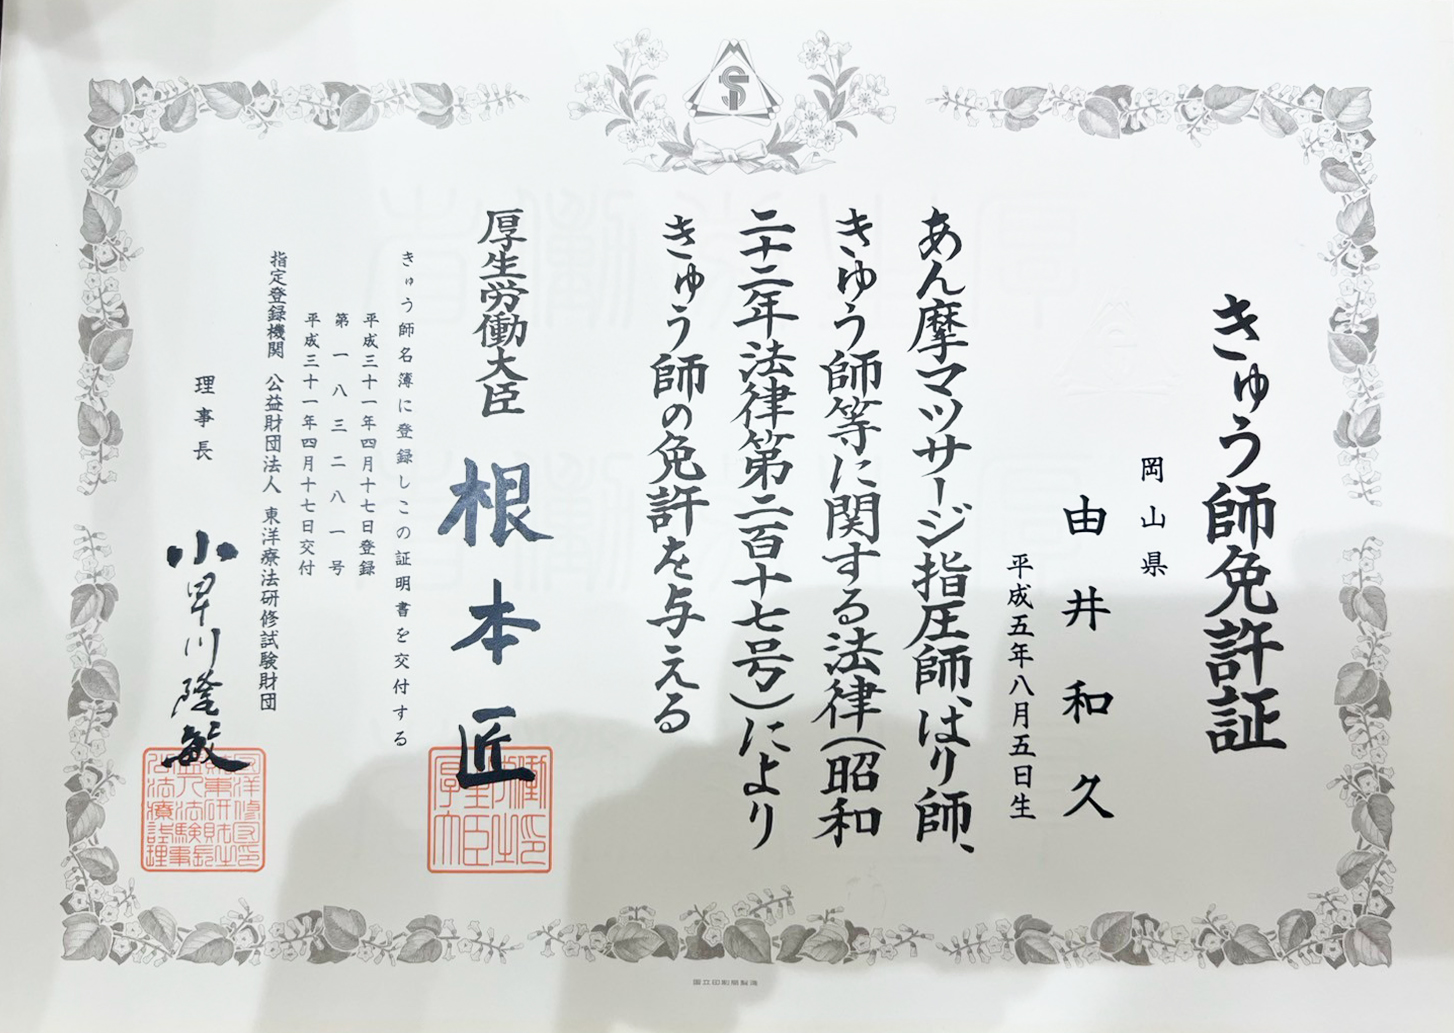 きゅう師免許証
岡山県
由井和久
平成五年八月五日生
あん摩マツサージ指圧師、はり師、
きゅう師等に関する法律(昭和
二十二年法律第二百十七号)により
きゅう師の免許を与える
厚生労働大臣 根本匠
きゅう師名簿に登録しこの証明書を交付する
平成三十一年四月十七日登録
第一八三二八一号
平成三十一年四月十七日交付
指定登録機関 公益財団法人 東洋療法研修試験財団
理事長 小早川隆敏
国立印刷局製造